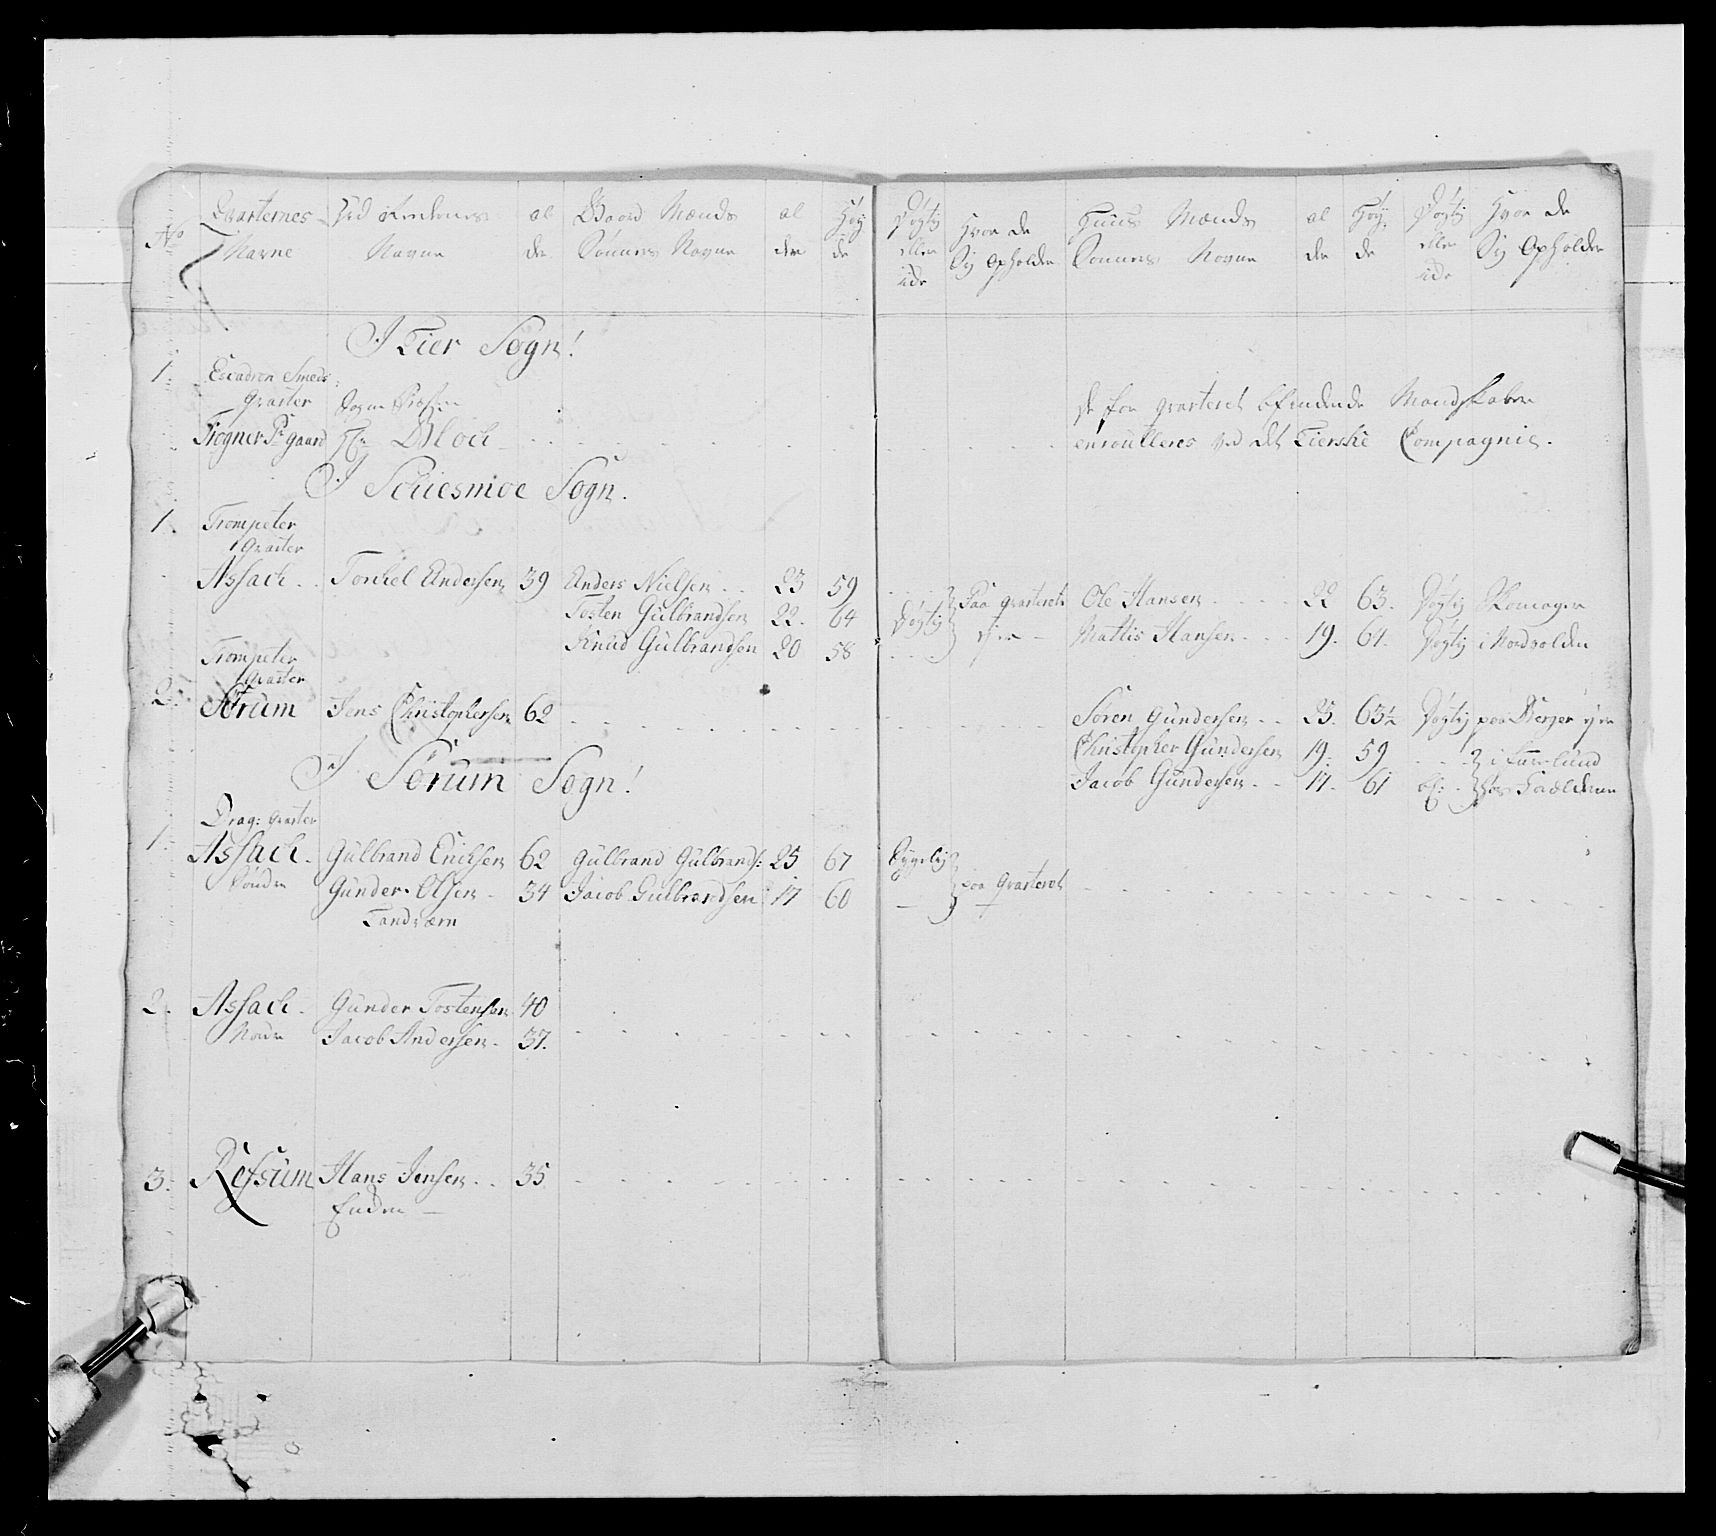 No
Qvarternes
Navne
Navne
al
der
Gaard Mænds
Sönners Navne
al
der
Höy
de
Dygtig
eller
ide
Hvor de
Sig Opholder
Huus Mænds
Sönners Navne
al
der
Höy
de
Dygtig
eller
ide
Hvor de
Sig Opholder
I Lier Sogn!
1. Escadron Smeds
Qvarter
Frogner P: gaard Hr Bloch
De for Qvarteret befindende Mandskaber
enroulleres ved det Lierske Compagnie.
I Schiesmoe Sogn.
1. Trompeter
Qvarter
Assach. Torchel Andersen 39 Anders Nielsen 23 59 Paa Qvarteret Ole Hansen 22 63. Dygtig Romager
Tosten Gulbrandsen 22. 64 Dygtig Mattis Hansen 19. 61. Dygtig i Nordvolden
Knud Gulbrandsen 20 58
Trompeter
Qvarter
2. Sörum Jens Christophersen 62 Sören Gundersen 23. 63½ Dygtig paa Berger
Christopher Gundersen 19. 59
Jacob Gundersen 17. 61 hos Forældrene
I Sörum Sogn!
Drag: Qvarter
1. Assach. Gulbrand Erichsen 62 Gulbrand Gulbrands: 25 67 Sygelig paa Qvarteret
Söndre Gunder Olsen 34 Jacob Gulbrandsen 17 60
Landværn
2. Assach. Gunder Tostensen 40
Nordre Jacob Andersen. 37.
3. Refsum Hans Jensen 35